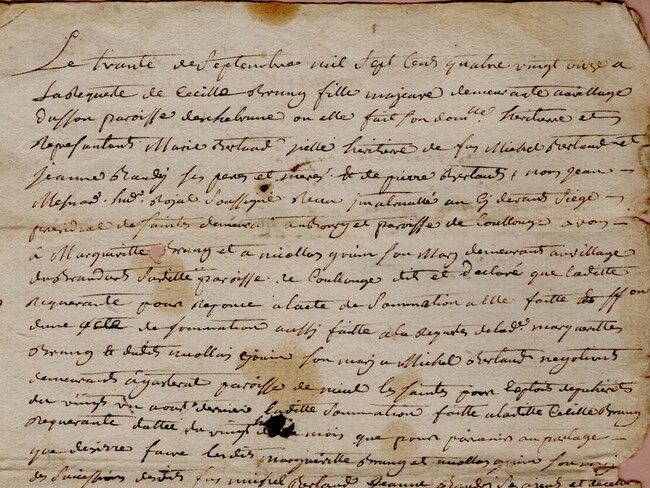 Le trante de Septembre mil Sept Cens quatre vingt onze a
La Requeste de Cecille Brung fille majeure demeurante au village
dusson paroisse deschebrune ou elle fait son dom.lle heritiere et
Representant Marie Berland icelle heritiere de fus Michel Berland et
Jeanne ses peres et meres & de pierre Berland, nous Jean
Royal Soussigné Recu immatriculé au Cy devant Siege
presidial de Saintes demeurant au Bourg et paroisse de Coullonge
à Margueritte Brung et a nicollas son Mary demeurant au village
paroisse de Coullonge dit et declaré que laditte
Requerante pour Reponce a lacte de Sommation a Elle faitte
dune de Sommation aussi faitte a la Requeste de lad.e margueritte
Brung & dudit nicollas son mary a Michel Berland negotiant
demeurant à paroisse de nieul les saintes pour
du vingt aoust dernier laditte Sommation faitte a laditte Cecille Brung
Requerante dattée du vingt mois que pour parvenir au partage
que desire faire lesdits margueritte Brung et nicollas son mary
des Successions desdits fus michel Berland Jeanne